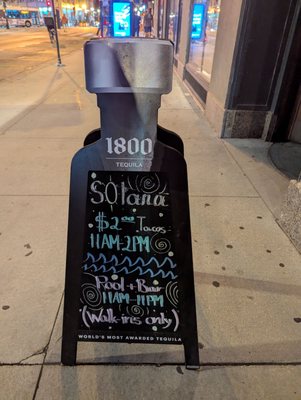 1800
TEQUILA
SOlana
$2 Tacos
11AM-2PM
Pool + Bar
11AM-11PM
(Walk-ins only)
WORLD'S MOST AWARDED TEQUILA